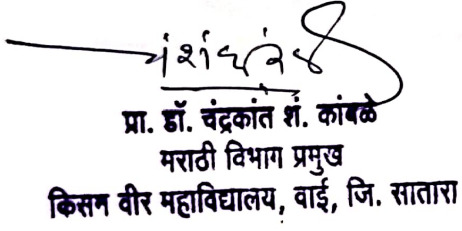 प्रा. डॉ. चंद्रकांत शं. कांबळे
मराठी विभाग प्रमुख
किसन वीर महाविद्यालय, वाई, जि. सातारा